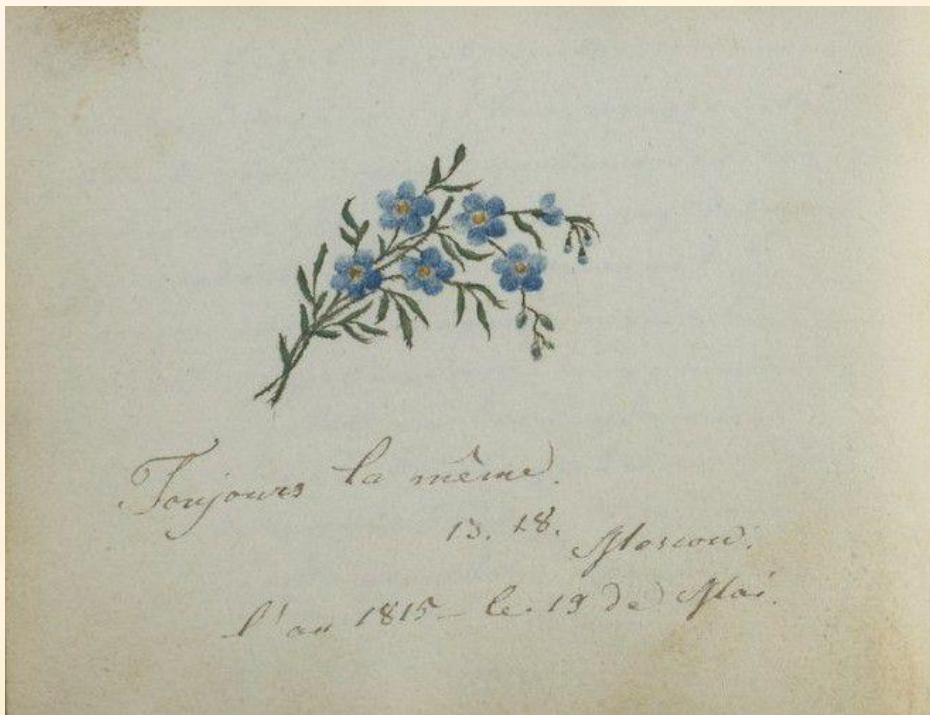 Toujours la même.
13. 18.
Moscou.
l'an 1815 – le 19 de Mai.